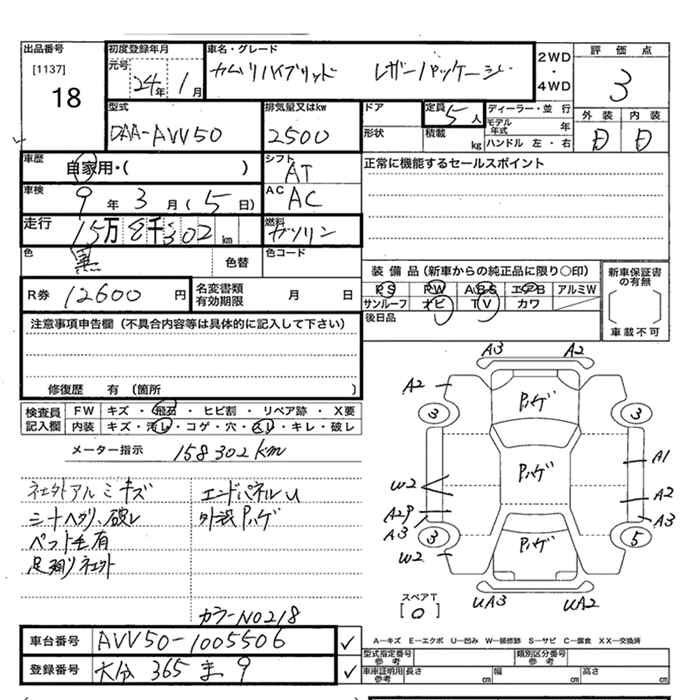 出品番号
[1137]
18
初度登録年月
元号
24年 1月
車名・グレード
カムリハイブリッド レザーパッケージ
2WD
・
4WD
評価点
3
型式
DAA-AVV50
排気量又はkw
2500
ドア
定員
5人
形状
積載
kg
ディーラー・並行
モデル年式 年
ハンドル 左・右
外装 内装
D D
車歴
自家用・( )
シフト
AT
正常に機能するセールスポイント
車検
9年 3月(5日)
AC
AC
走行
15万8千302km
燃料
ガソリン
色
黒
色替
色コード
装備品(新車からの純正品に限り○印)
PS PW ABS エアB アルミW
サンルーフ ナビ TV カワ
新車保証書の有無
車載不可
後日品
R券 12600円
名変書類有効期限 月 日
注意事項申告欄(不具合内容等は具体的に記入して下さい)
修復歴 有(箇所 )
検査員記入欄
FW キズ・飛石・ヒビ割・リペア跡・X要
内装 キズ・汚レ・コゲ・穴・スレ・キレ・破レ
メーター指示 158302km
社外アルミキズ
シートヘタリ、破レ
ペット毛有
足廻り社外
エンドパネルU
外装Pハゲ
カラーNO218
A3 A2
A2
Pハゲ
3 3
A1
Pハゲ
W2
A2
A2P
A3
A3
3 5
W2
Pハゲ
スペアT
[0]
UA3 UA2
A―キズ E―エクボ U―凹み W―補修跡 S―サビ C―腐食 XX―交換済
車台番号 AVV50-1005506
登録番号 大分 365 ま 9
型式指定番号
参考
類別区分番号
参考
車庫証明用 長さ cm 幅 cm 高さ cm
参考